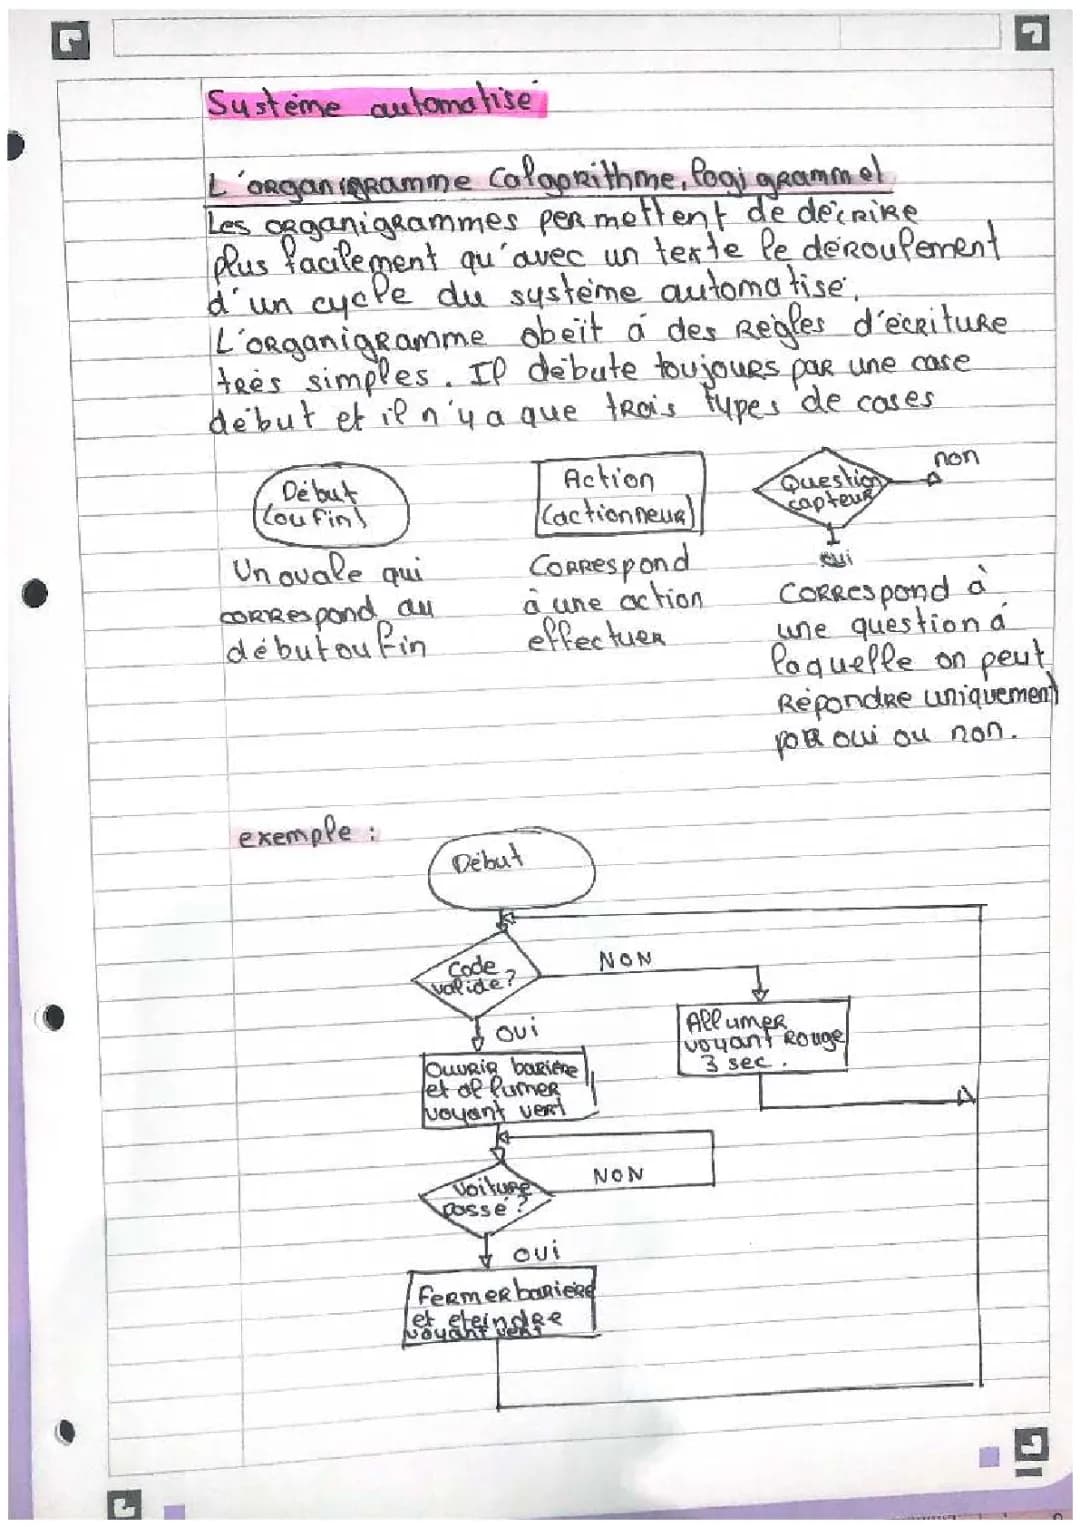 Système automatisé
L'organigramme (algorithme, logigramme)
Les organigrammes permettent de décrire
plus facilement qu'avec un texte le déroulement
d'un cycle du système automatisé.
L'organigramme obeït á des règles d'écriture
très simples. Il débute toujours par une case
début et il n'y a que trois types de cases
Début
(ou fin)
Un ovale qui
correspond au
début ou fin
Action
(actionneur)
Correspond
à une action
effectuer
Question
capteur
non
oui
Correspond à
une question á
laquelle on peut
Répondre uniquement
par oui ou non.
exemple :
Début
Code
valide?
NON
oui
Allumer
voyant Rouge
3 sec.
Ouvrir barière
et allumer
voyant vert
Voiture
passé ?
NON
oui
Fermer barière
et eteindre
voyant vert